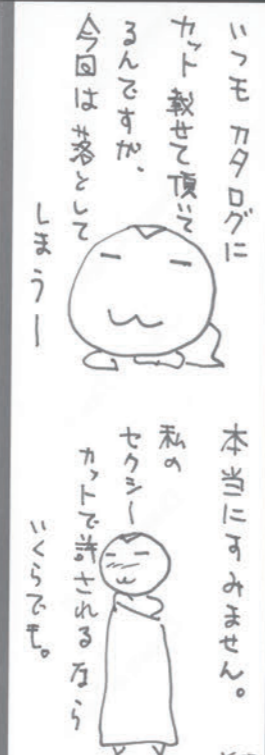 いつもカタログに
カット載せて頂いて
るんですが、
今回は落として
しまうー
本当にすみません。
私の
セクシー
カットで許されるなら
いくらでも。